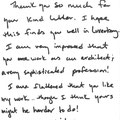 Thank you so much for
your kind letter. I hope
this finds you well in
I am very impressed that
you are work as an architect;
a very sophisticated profession!
I am flattered that you like
my work though I think yours
might be harder to do!